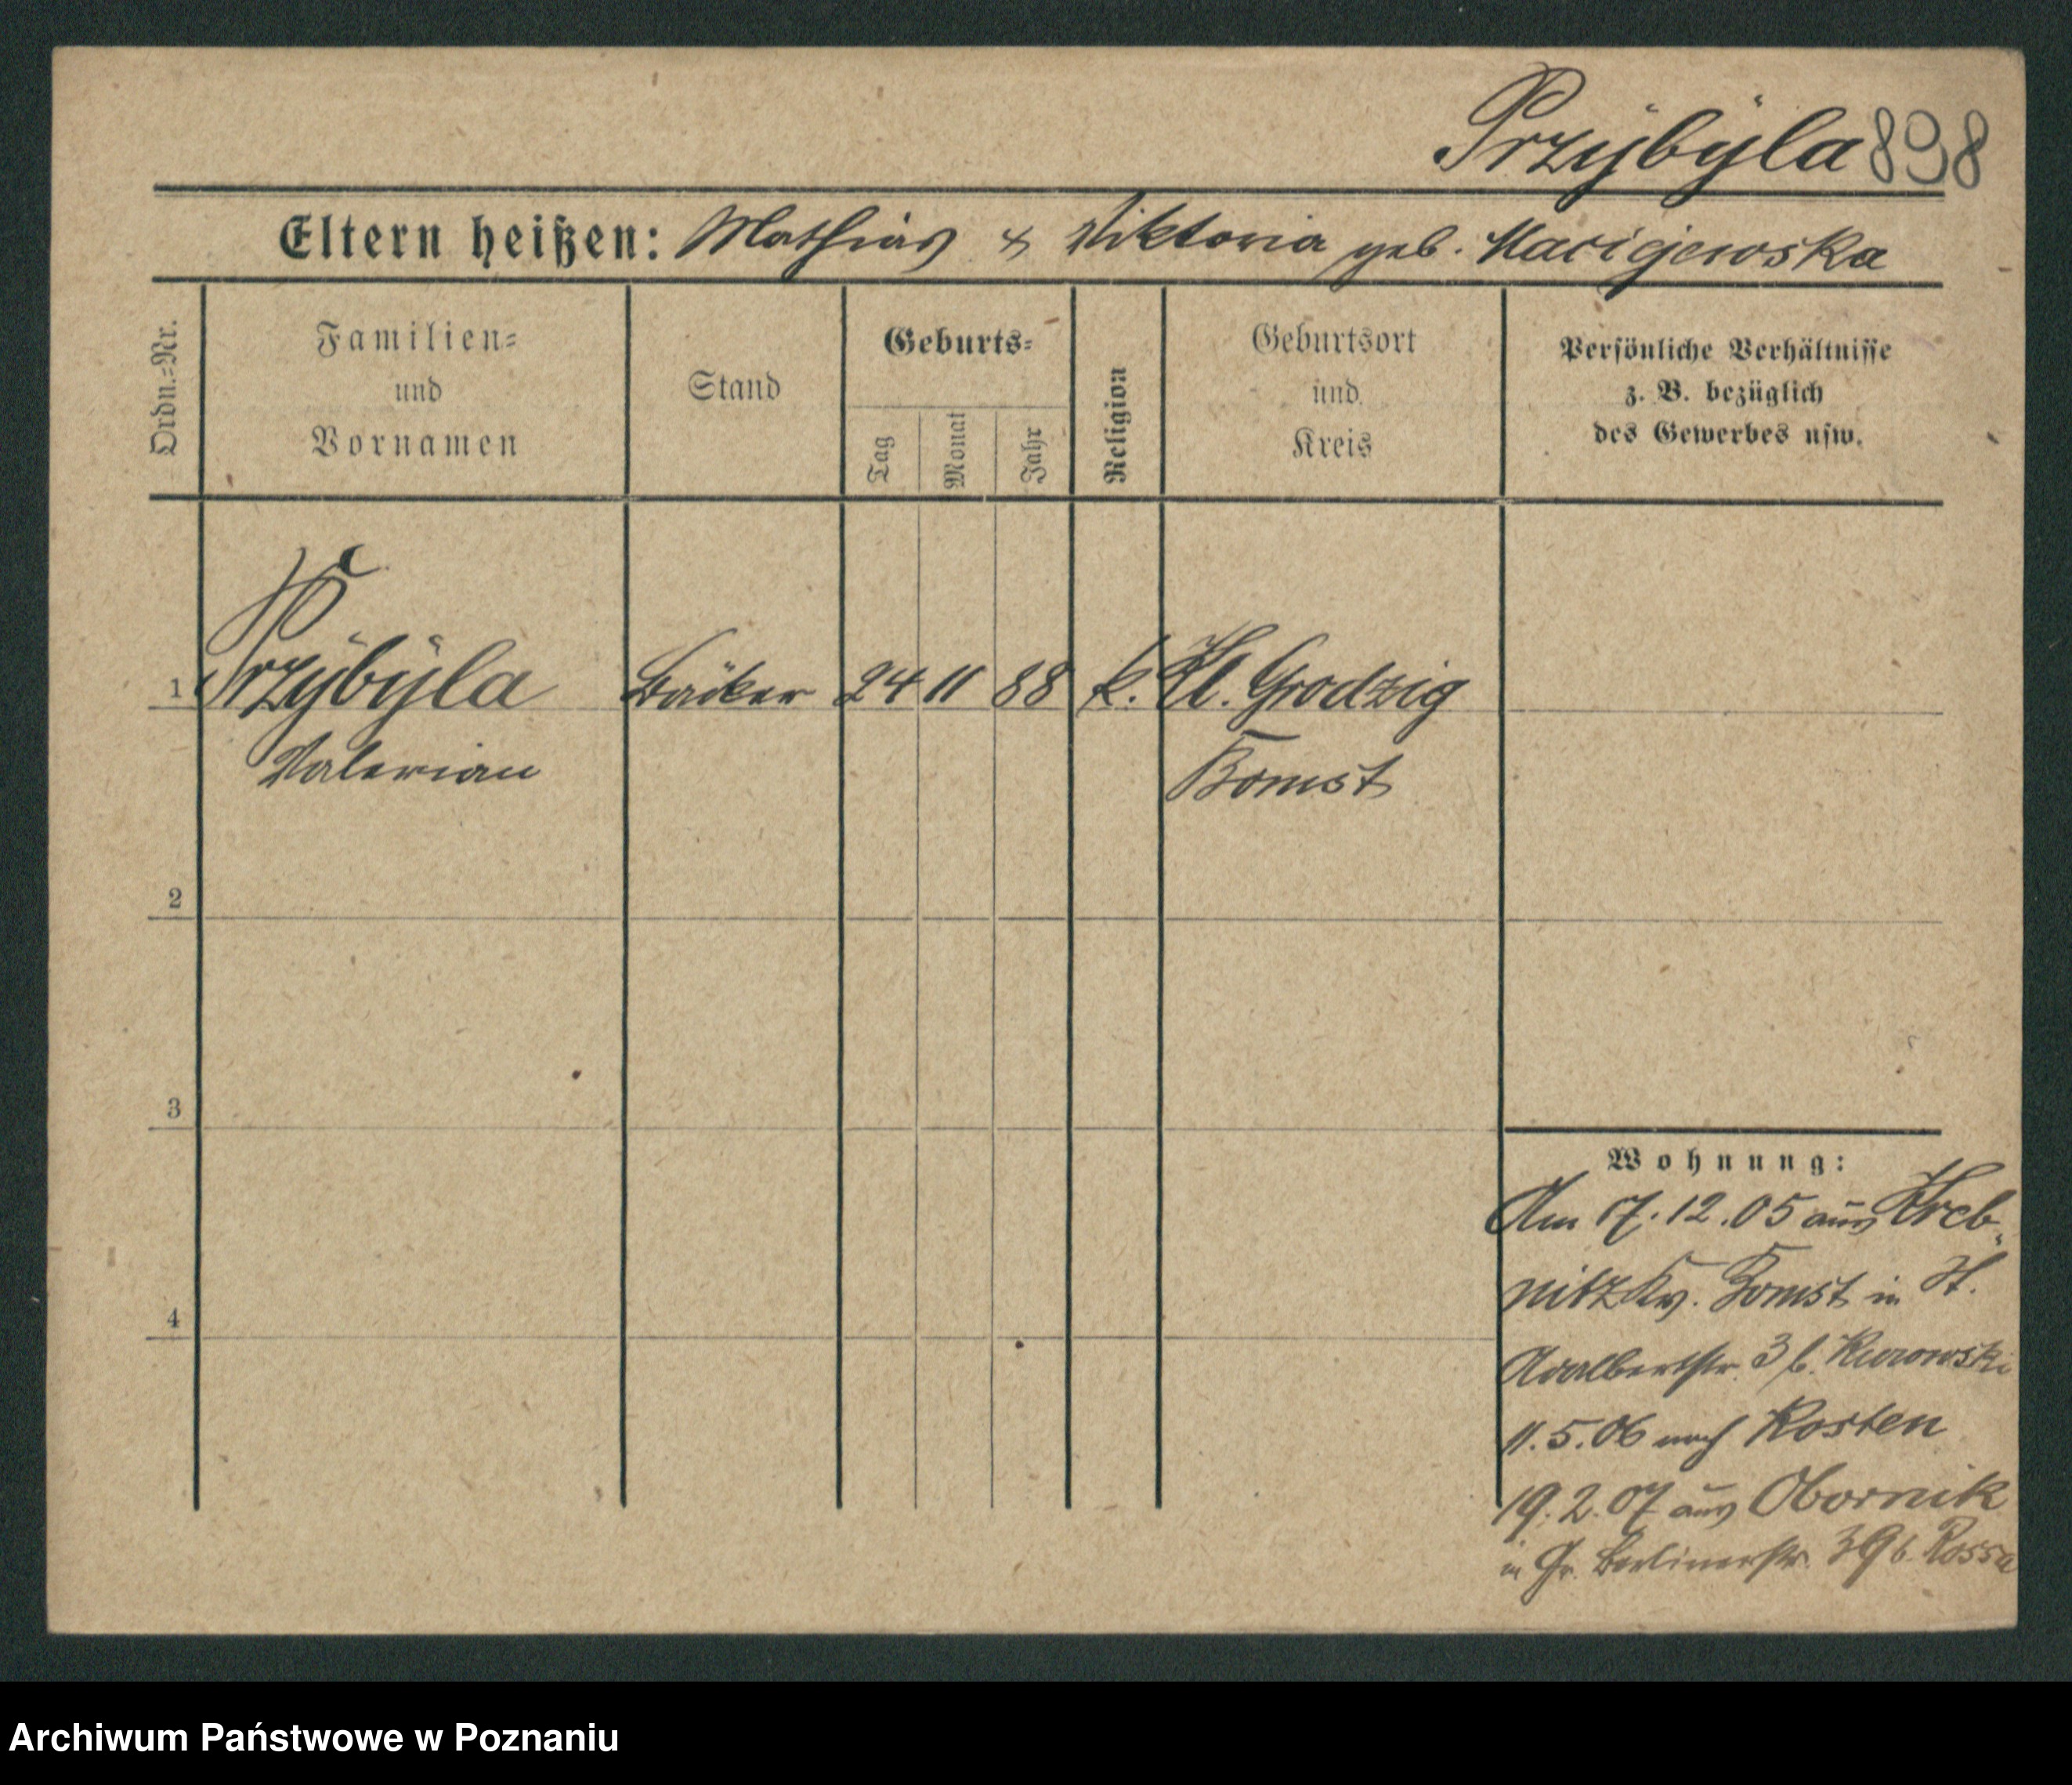 Przÿbÿla 898
Eltern heißen: Mathias & Viktoria geb. Maciejewska
Ordn.=Nr.
Familien=
und
Vornamen
Stand
Geburts=
Tag
Monat
Jahr
Religion
Geburtsort
und
Kreis
Persönliche Verhältnisse
z. B. bezüglich
des Gewerbes usw.
1 Przÿbÿla Bäcker 24 11 88 k. Kl. Grodzig
Valerian Bomst
2
3
4
Wohnung:
Am 17.12.05 aus
Kr. Bomst in St.
Adalbertstr. 3 b. Kurowski
11.5.06 nach Kosten
19.2.07 aus Obornik
in Gr. Berlinerstr. 39 b.
Archiwum Państwowe w Poznaniu